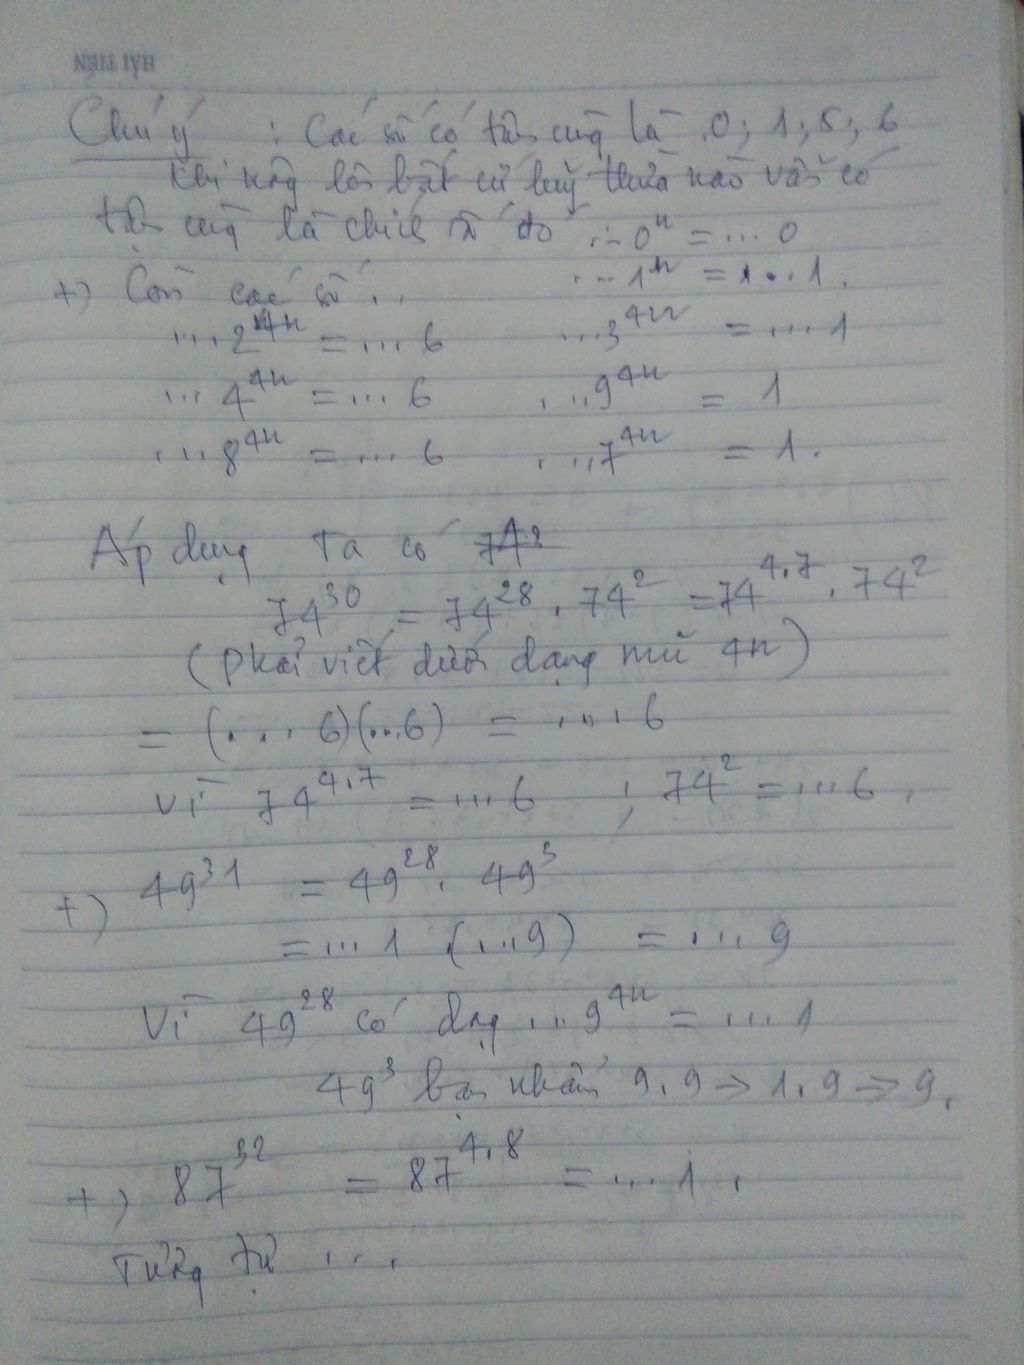 HẢI TIẾN
Chú ý : Các số có tận cùng là 0; 1; 5; 6
khi nâng lên bất cứ luỹ thừa nào vẫn có
tận cùng là chính số đó ...0ⁿ = ... 0
+) Còn các số ... ...1ⁿ = ...1.
...2⁴ⁿ = ...6 ...3⁴ⁿ = ...1
...4⁴ⁿ = ...6 ...9⁴ⁿ = 1
...8⁴ⁿ = ...6 ...7⁴ⁿ = 1.
Áp dụng Ta có
74³⁰ = 74²⁸ . 74² = 74⁴·⁷ . 74²
(phải viết dưới dạng mũ 4n)
= (....6)(...6) = ....6
Vì 74⁴·⁷ = ...6 ; 74² = ...6.
+) 49³¹ = 49²⁸ . 49³
= ...1 . (...9) = ....9
Vì 49²⁸ có dạng ...9⁴ⁿ = ....1
49³ bạn nhẩm 9.9 → 1.9 → 9.
+) 87³² = 87⁴·⁸ = ...1.
Tương tự ...